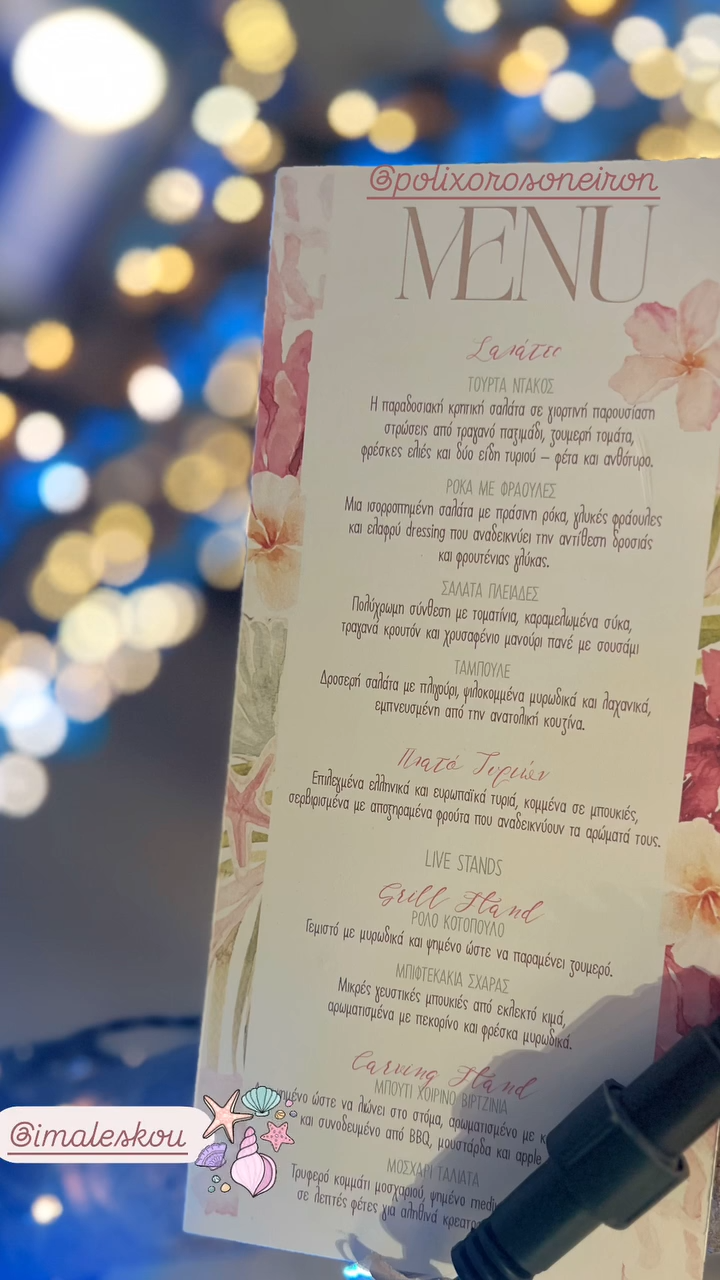 @polixorosoneiron
MENU
Σαλάτες
ΤΟΥΡΤΑ ΝΤΑΚΟΣ
Η παραδοσιακή κρητική σαλάτα σε γιορτινή παρουσίαση
στρώσεις από τραγανό παξιμάδι, ζουμερή τομάτα,
φρέσκες ελιές και δύο είδη τυριού – φέτα και ανθότυρο.
ΡΟΚΑ ΜΕ ΦΡΑΟΥΛΕΣ
Μια ισορροπημένη σαλάτα με πράσινη ρόκα, γλυκές φράουλες
και ελαφρύ dressing που αναδεικνύει την αντίθεση δροσιάς
και φρουτένιας γλύκας.
ΣΑΛΑΤΑ ΠΛΕΙΑΔΕΣ
Πολύχρωμη σύνθεση με τοματίνια, καραμελωμένα σύκα,
τραγανά κρουτόν και χρυσαφένιο μανούρι πανέ με σουσάμι
ΤΑΜΠΟΥΛΕ
Δροσερή σαλάτα με πλιγούρι, ψιλοκομμένα μυρωδικά και λαχανικά,
εμπνευσμένη από την ανατολική κουζίνα.
Πιατό Τυριών
Επιλεγμένα ελληνικά και ευρωπαϊκά τυριά, κομμένα σε μπουκιές,
σερβιρισμένα με αποξηραμένα φρούτα που αναδεικνύουν τα αρώματά τους.
LIVE STANDS
Grill Stand
ΡΟΛΟ ΚΟΤΟΠΟΥΛΟ
Γεμιστό με μυρωδικά και ψημένο ώστε να παραμένει ζουμερό.
ΜΠΙΦΤΕΚΑΚΙΑ ΣΧΑΡΑΣ
Μικρές γευστικές μπουκιές από εκλεκτό κιμά,
αρωματισμένα με πεκορίνο και φρέσκα μυρωδικά.
Carving Stand
ΜΠΟΥΤΙ ΧΟΙΡΙΝΟ ΒΙΡΤΖΙΝΙΑ
ώστε να λιώνει στο στόμα, αρωματισμένο με
και συνοδευμένο από BBQ, μουστάρδα και apple
@imaleskou
ΜΟΣΧΑΡΙ ΤΑΛΙΑΤΑ
Τρυφερό κομμάτι μοσχαριού, ψημένο
σε λεπτές φέτες για αληθινά